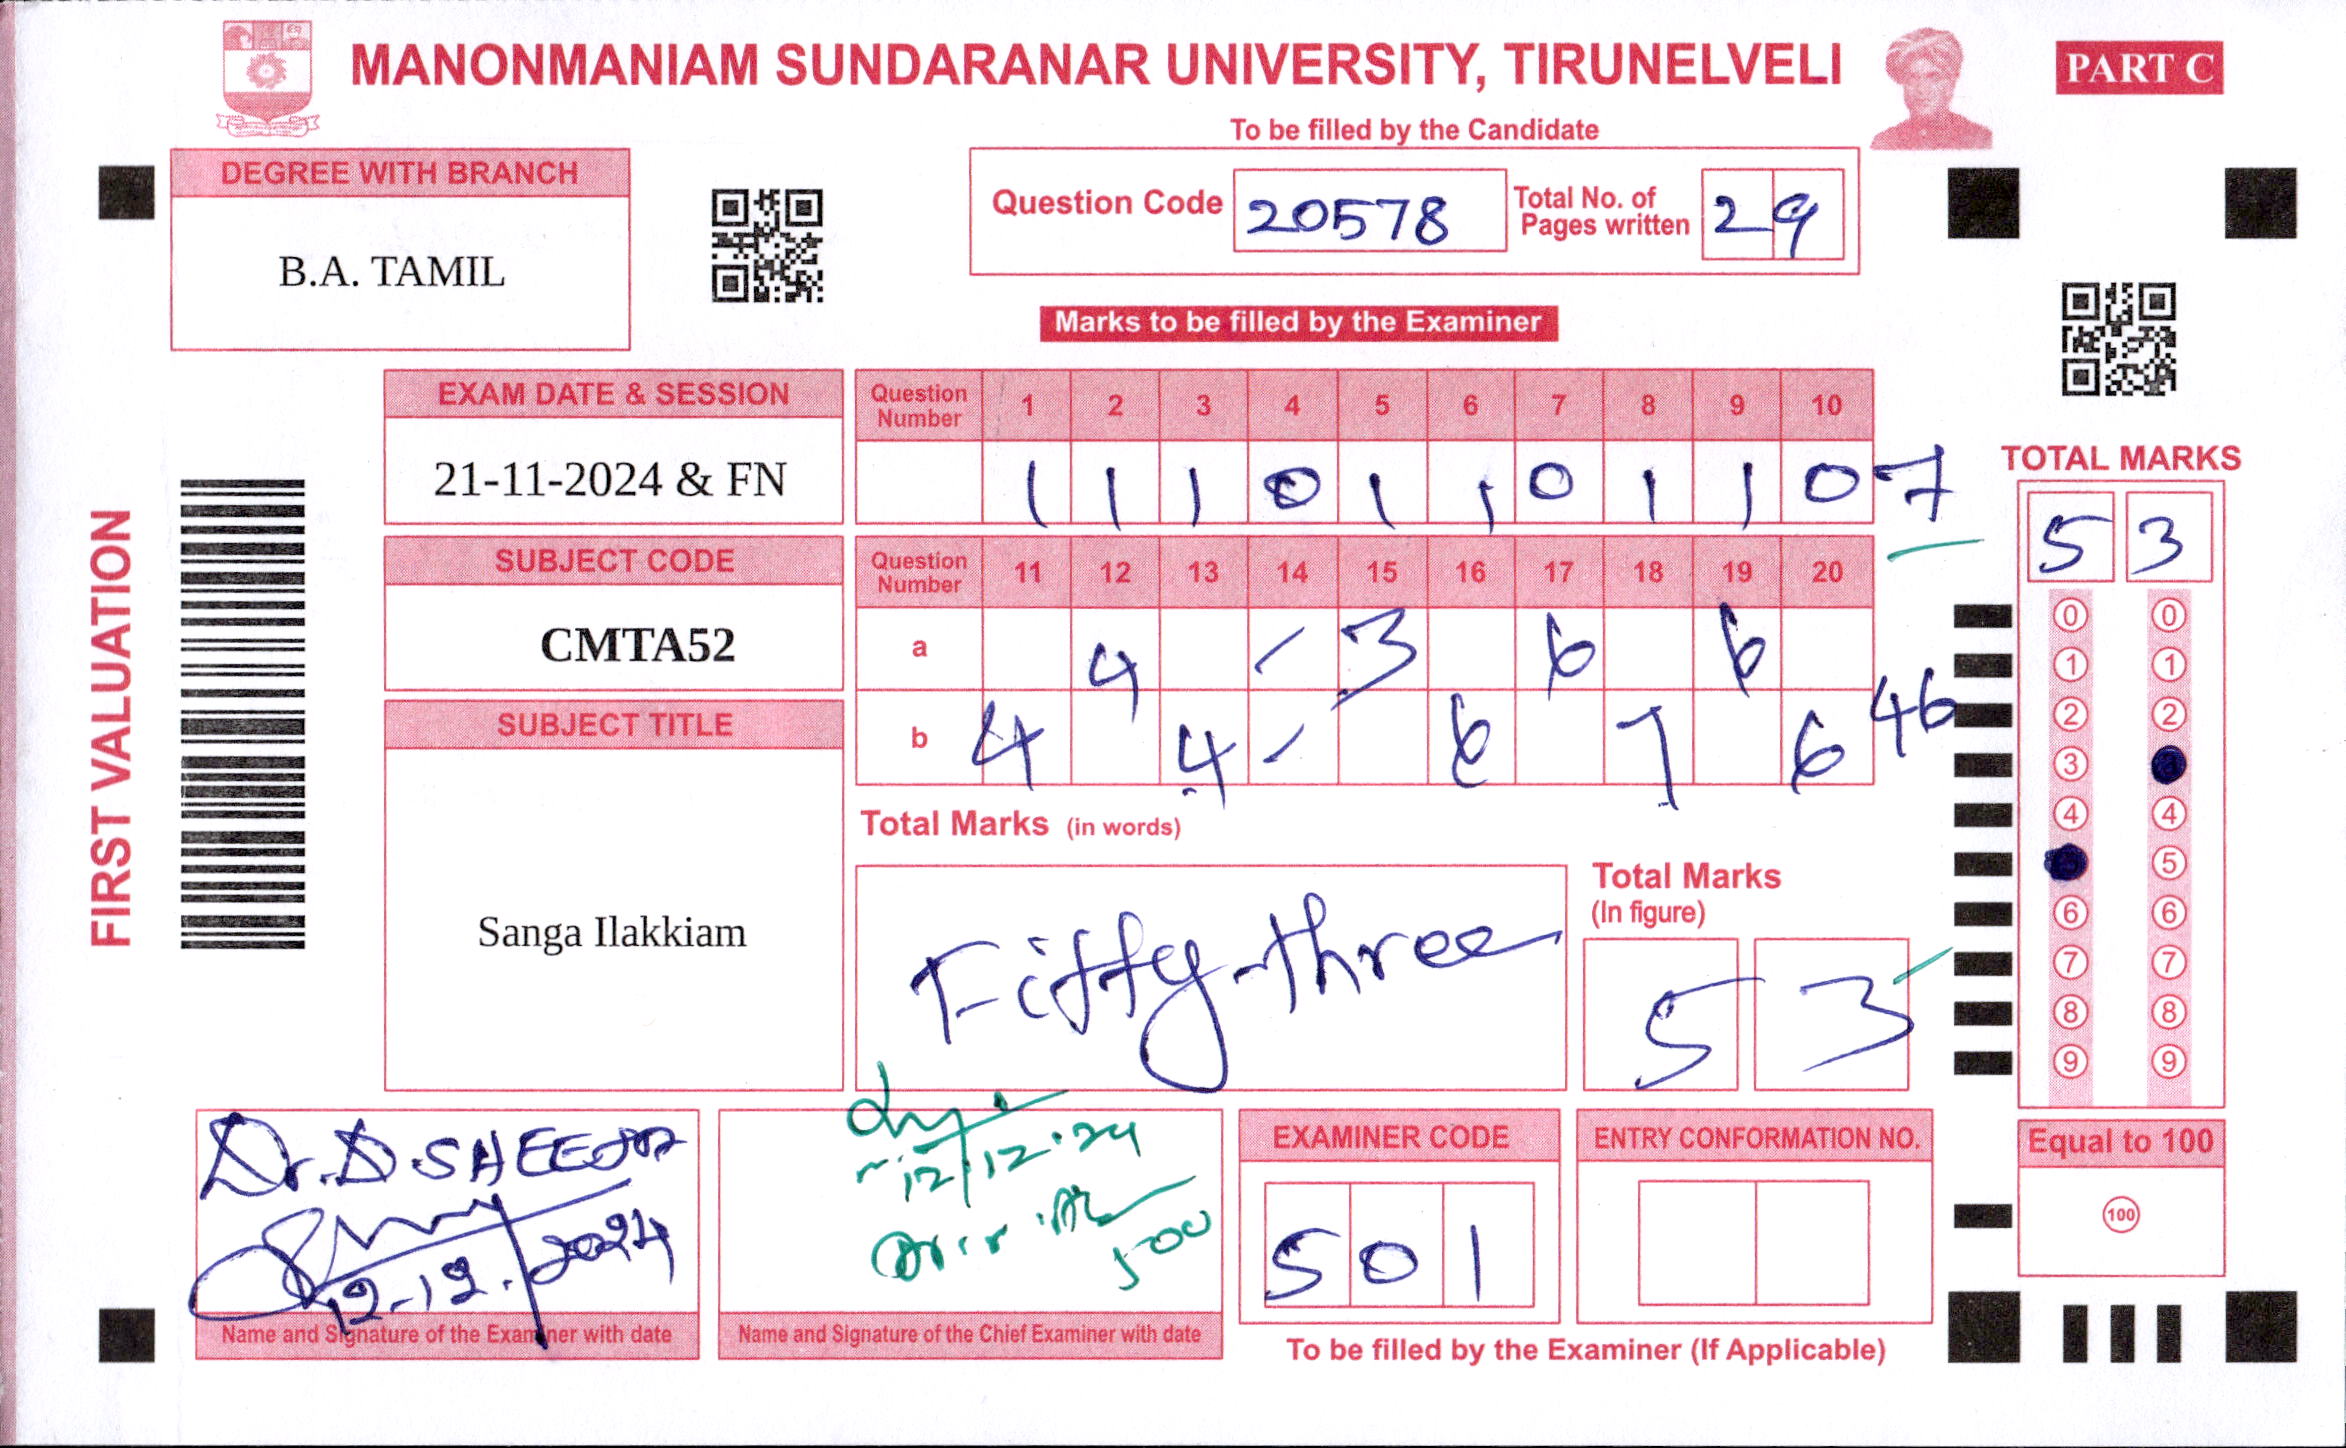 MANONMANIAM SUNDARANAR UNIVERSITY, TIRUNELVELI
PART C
To be filled by the Candidate
DEGREE WITH BRANCH
B.A. TAMIL
Question Code 20578 Total No. of Pages written 29
Marks to be filled by the Examiner
EXAM DATE & SESSION
21-11-2024 & FN
Question Number 1 2 3 4 5 6 7 8 9 10
1 1 1 0 1 1 0 1 1 0 7
SUBJECT CODE
CMTA52
Question Number 11 12 13 14 15 16 17 18 19 20
a 4 - 3 6 6
b 4 4 - 6 7 6 46
SUBJECT TITLE
Sanga Ilakkiam
Total Marks (in words)
Fiffy-three
Total Marks
(In figure)
5 3
FIRST VALUATION
TOTAL MARKS
5 3
0 0
1 1
2 2
3
4 4
5
6 6
7 7
8 8
9 9
Equal to 100
100
Dr. D. SHEEBA
12-12-2024
Name and Signature of the Examiner with date
12/12.24
500
Name and Signature of the Chief Examiner with date
EXAMINER CODE
501
ENTRY CONFORMATION NO.
To be filled by the Examiner (If Applicable)